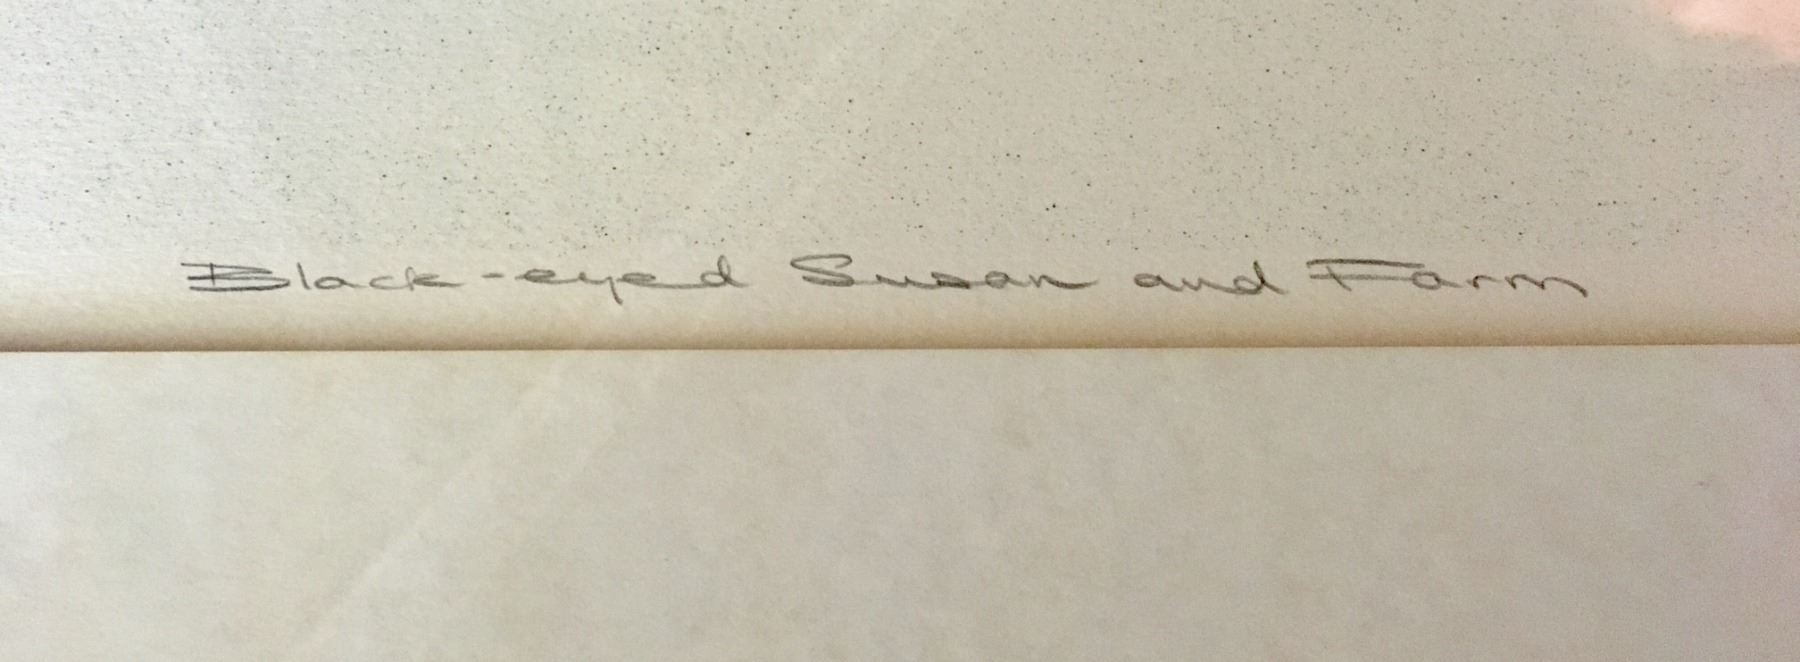 Black-eyed Susan and Farm